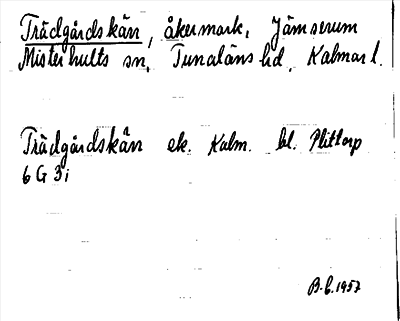 Trädgårdskän, åkermark, Jämserum
Misterhults sn, Tunaläns hd, Kalmar l.
Trädgårdskän ek. Kalm. bl. Plittorp
6 G 3i
B.G. 1957